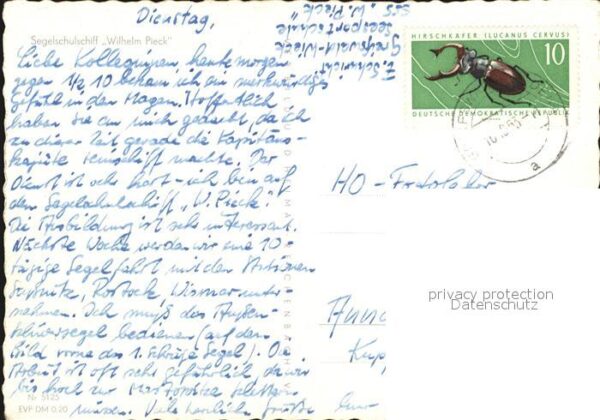 Dienstag,
Segelschulschiff „Wilhelm Pieck"
Liebe Kolleginnen heute morgen
gegen 1/2 10 bekam ich ein merkwürdiges
Gefühl in den Magen. Hoffentlich
haben Sie an mich gedacht, da ich
zu dieser Zeit gerade die Kapitäns-
kajüte reinschiff machte. Der
Dienst ist sehr hart - ich bin auf
dem Segelschulschiff „W. Pieck".
Die Ausbildung ist sehr interessant.
Nächste Woche werden wir eine 10-
tägige Segelfahrt mit den Stationen
Saßnitz, Rostock, Wismar unter-
nehmen. Ich muß das Außen-
klüversegel bedienen (auf dem
Bild vorne das 1. schräge Segel). Die
Arbeit ist oft sehr gefährlich, da wir
bis hoch zur klettern
müssen. Viele herzliche Grüße
Nr 5125
EVP DM 0,20
Greifswald-Wieck
Seesportschule
SSS „W. Pieck"
HIRSCHKÄFER (LUCANUS CERVUS)
10
DEUTSCHE DEMOKRATISCHE REPUBLIK
a
HO-
privacy protection
Datenschutz